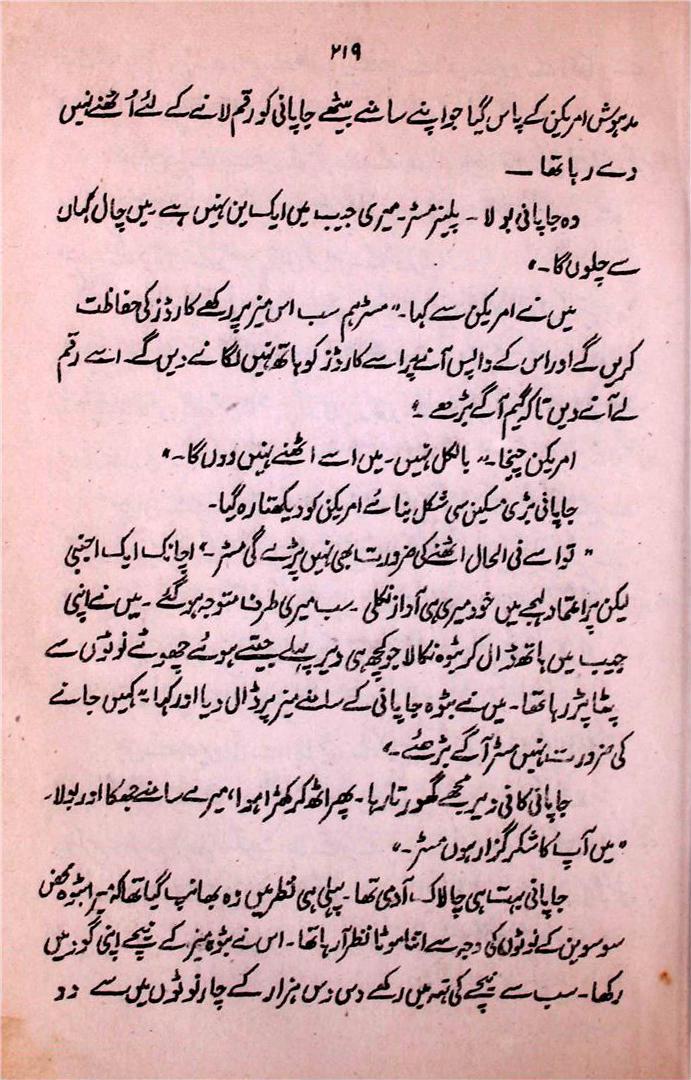 ۲۱۹
مدہوش امریکن کے پاس گیا جو اپنے سامنے بیٹھے جاپانی کو رقم لانے کے لئے اُٹھنے نہیں
دے رہا تھا ۔
وہ جاپانی بولا ۔ پلیز مسٹر ۔ میری جیب میں ایک ین نہیں ہے ۔ میں چال کہاں
سے چلوں گا ۔"
میں نے امریکن سے کہا ۔" مسٹر ہم سب اس میز پر رکھے کارڈز کی حفاظت
کریں گے اور اس کے واپس آنے پر اسے کارڈز کو ہاتھ نہیں لگانے دیں گے۔ اسے رقم
لے آنے دیں تاکہ گیم آگے بڑھے ۔"
امریکن چیخا ۔" بالکل نہیں ۔ میں اسے اٹھنے نہیں دوں گا ۔"
جاپانی بڑی مسکین سی شکل بنائے امریکن کو دیکھتا رہ گیا۔
" تو اسے فی الحال اٹھنے کی ضرورت بھی نہیں پڑے گی مسٹر ۔" اچانک ایک اجنبی
لیکن پر اعتماد لہجے میں خود میری ہی آواز نکلی ۔ سب میری طرف متوجہ ہو گئے ۔ میں نے اپنی
جیب میں ہاتھ ڈال کر بٹوہ نکالا جو کچھ ہی دیر پہلے جیتے ہوئے چھوٹے نوٹوں سے
پھٹا پڑ رہا تھا ۔ میں نے بٹوہ جاپانی کے سامنے میز پر ڈال دیا اور کہا " کہیں جانے
کی ضرورت نہیں مسٹر آگے بڑھئے ۔"
جاپانی کافی دیر مجھے گھورتا رہا ۔ پھر اٹھ کر کھڑا ہوا، میرے سامنے جھکا اور بولا۔
" میں آپ کا شکر گزار ہوں مسٹر ۔"
جاپانی بہت ہی چالاک آدمی تھا ۔ پہلی ہی نظر میں وہ بھانپ گیا تھا کہ میرا بٹوہ محض
سو سو ین کے نوٹوں کی وجہ سے اتنا موٹا نظر آ رہا تھا ۔ اس نے بٹوہ میز کے نیچے اپنی گود میں
رکھا ۔ سب سے نیچے کی تہہ میں رکھے دس دس ہزار کے چار نوٹوں میں سے دو